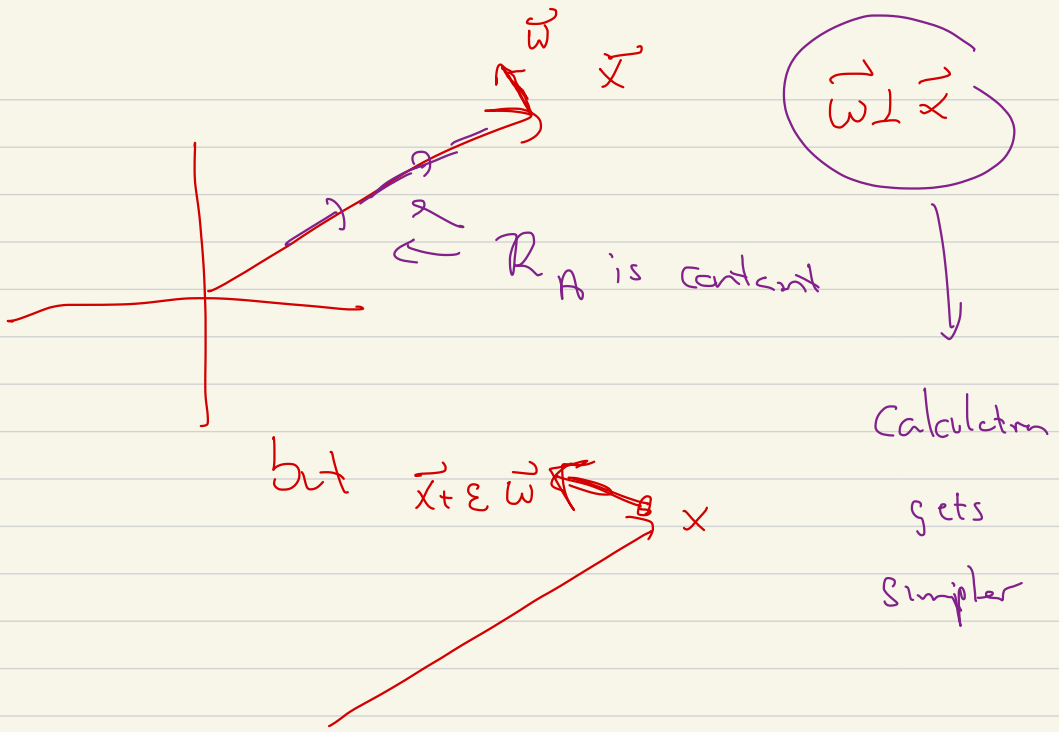 w⃗
x⃗
w⃗ ⊥ x⃗
R_A is contant
Calculatm
gets
simpler
but x⃗ + ε w⃗
x